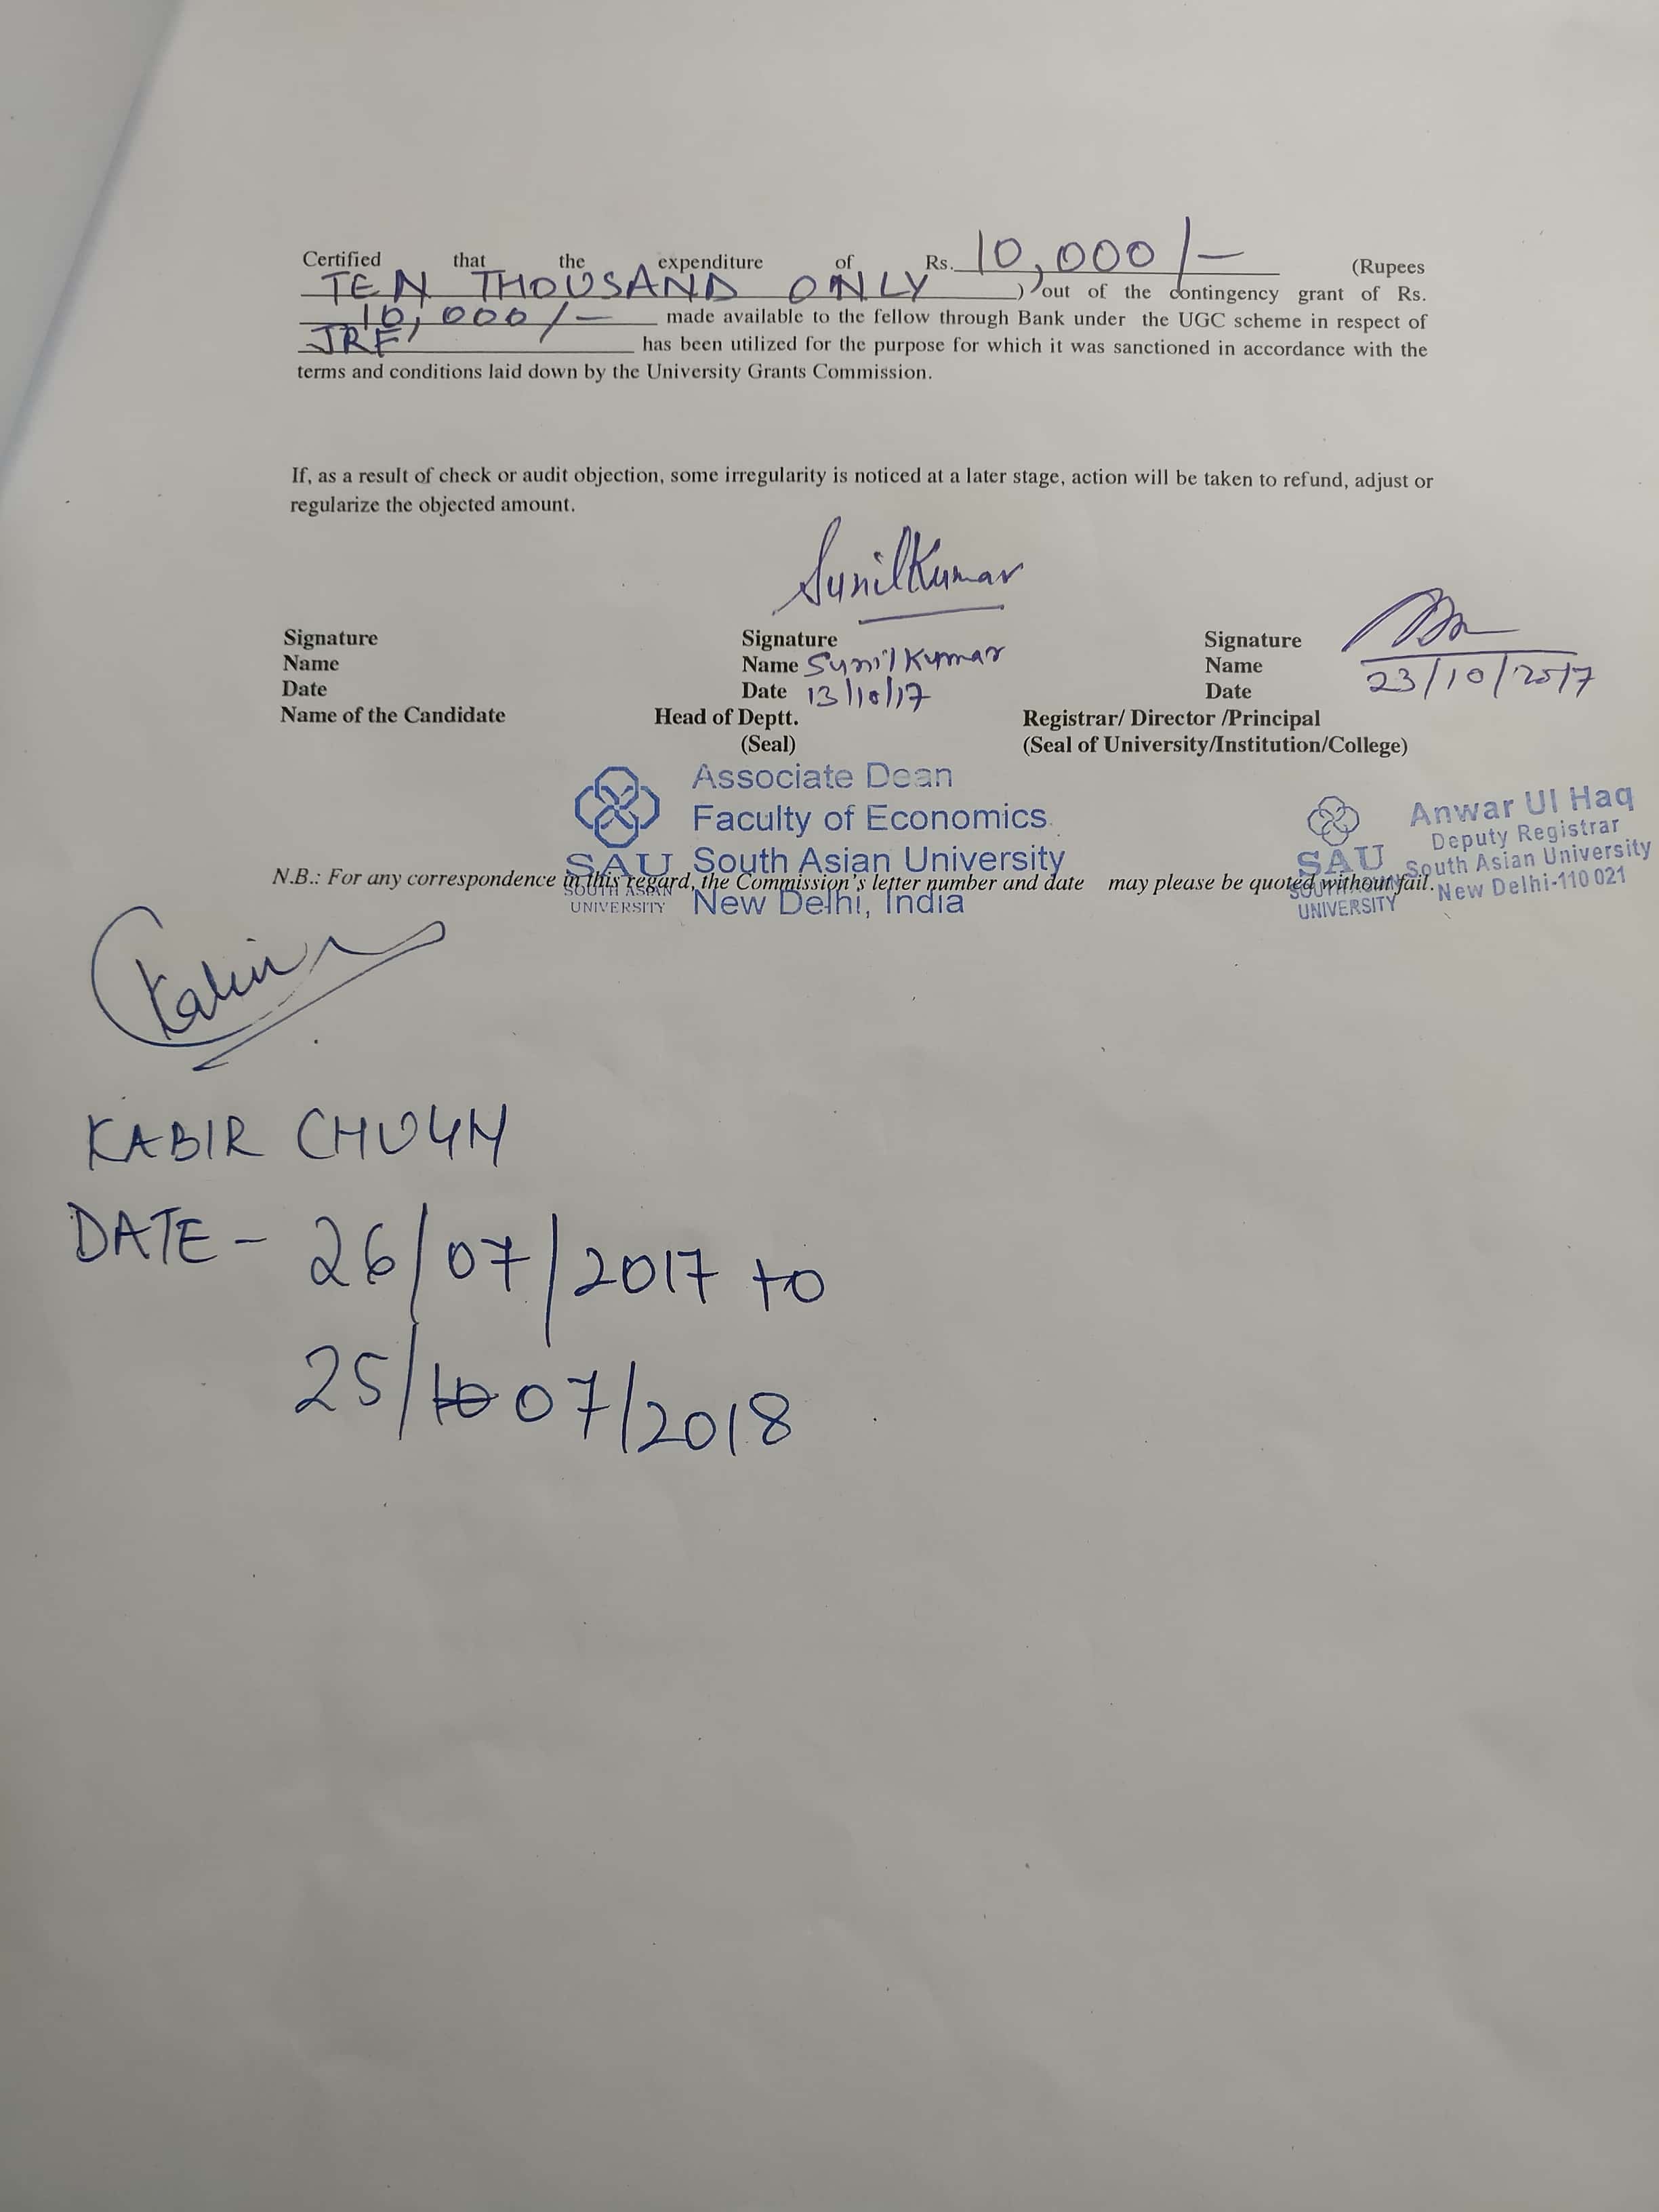 Certified that the expenditure of Rs. 10,000/- (Rupees
TEN THOUSAND ONLY ) out of the contingency grant of Rs.
10,000/- made available to the fellow through Bank under the UGC scheme in respect of
JRF has been utilized for the purpose for which it was sanctioned in accordance with the
terms and conditions laid down by the University Grants Commission.
If, as a result of check or audit objection, some irregularity is noticed at a later stage, action will be taken to refund, adjust or
regularize the objected amount.
Sunil Kumar
Signature Signature Signature
Name Name Sunil Kumar Name
Date Date 13/10/17 Date 23/10/2017
Name of the Candidate Head of Deptt. Registrar/ Director /Principal
(Seal) (Seal of University/Institution/College)
Associate Dean
Faculty of Economics
South Asian University
New Delhi, India
SAU
SOUTH ASIAN
UNIVERSITY
Anwar Ul Haq
Deputy Registrar
South Asian University
New Delhi-110 021
SAU
SOUTH ASIAN
UNIVERSITY
N.B.: For any correspondence in this regard, the Commission's letter number and date may please be quoted without fail.
Kabir
KABIR CHUGH
DATE - 26/07/2017 to
25/10 07/2018